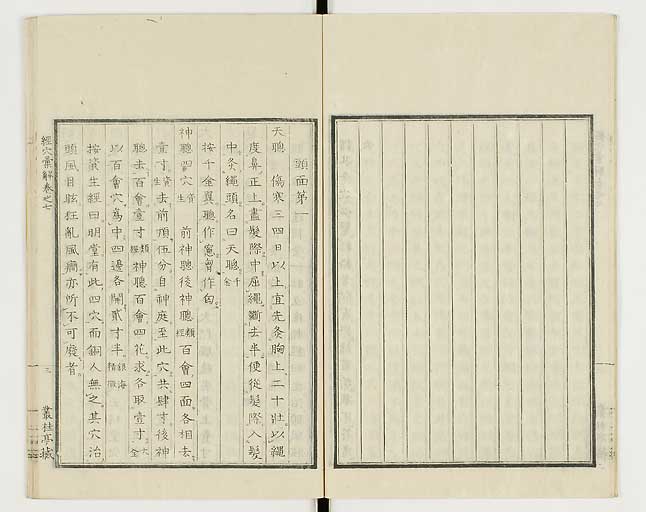 頭面第一
天聰 傷寒三四日以上宜先灸胸上二十壯以繩
度鼻正上盡髮際中屈繩斷去半便從髮際入髮
中灸繩頭名曰天聰 千金
按千金翼聰作窻賀作匈
神聰四穴 資生 前神聰後神聰 類經 百會四面各相去
壹寸 資生 去前頂伍分自神庭至此穴共肆寸後神
聰去百會壹寸 類經 神聰百會四花求各取壹寸 大全
以百會穴爲中四邊各開貳寸半 銀海精微
按資生經曰明堂有此四穴而銅人無之其穴治
頭風目眩狂亂風癇亦所不可廢者
經穴彙解卷之七
三
叢桂亭藏